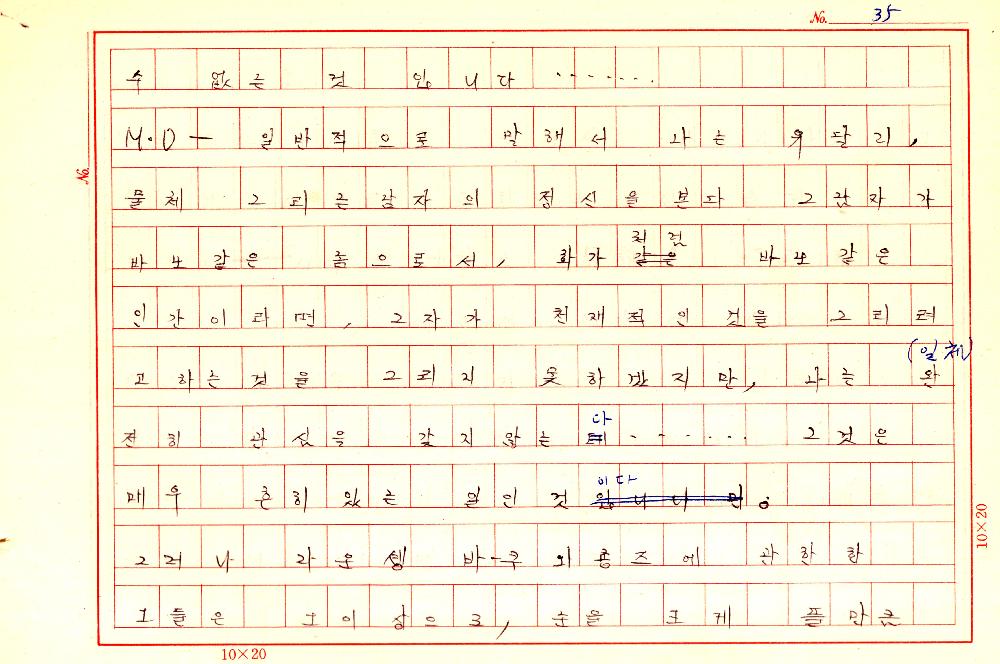 No. 35
수 없는 것 입니다 ·······
M·D— 일반적으로 말해서 나는 우달리,
물체 그리는 감자의 정신을 본다 그 감자가
바보 같은 좀으로서, 화가 처럼 바보 같은
인간이라면, 그자가 천재적인 것을 그리려
고 하는 것을 그리지 못하겠지만, 나는 완
(일체)
전히 관심을 갖지 않는다 ······ 그것은
매우 흔히 있는 일인 것이다.
그러나 라운셍 바-구의 용즈에 관한 한
그들은 그 이상으로, 눈을 크게 뜰만큼
No.
10×20
10×20